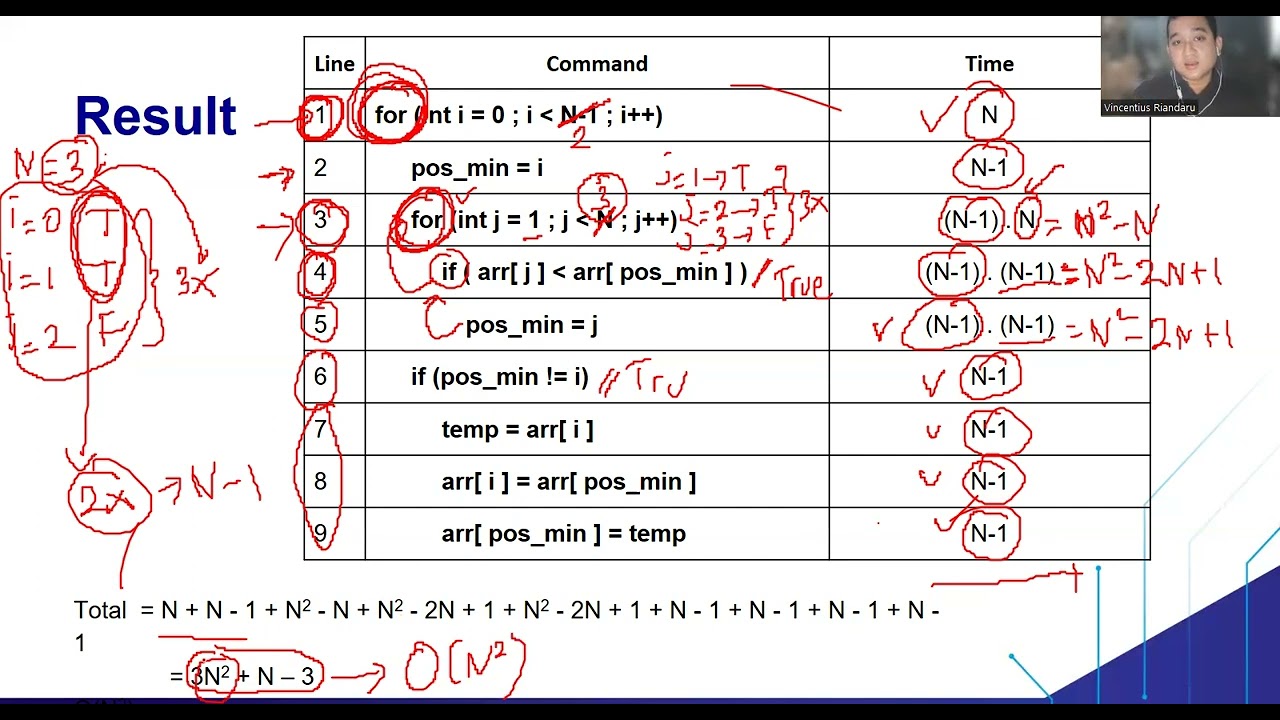 Line Command Time
Result
1 for (int i = 0 ; i < N-1 ; i++) N
2
N = 3
2 pos_min = i N-1
j=1 → T
3 for (int j = 1 ; j < N ; j++) (N-1) . N = N² - N
3
j=2 → T
3x
j=3 → F
i=0 T
i=1 T
i=2 F
3x
4 if ( arr[ j ] < arr[ pos_min ] ) // True (N-1) . (N-1) = N² - 2N + 1
5 pos_min = j (N-1) . (N-1) = N² - 2N + 1
6 if (pos_min != i) // Tru N-1
7 temp = arr[ i ] N-1
8 arr[ i ] = arr[ pos_min ] N-1
2x → N - 1
9 arr[ pos_min ] = temp N-1
Total = N + N - 1 + N² - N + N² - 2N + 1 + N² - 2N + 1 + N - 1 + N - 1 + N - 1 + N -
1
= 3N² + N – 3 → O(N²)
Vincentius Riandaru